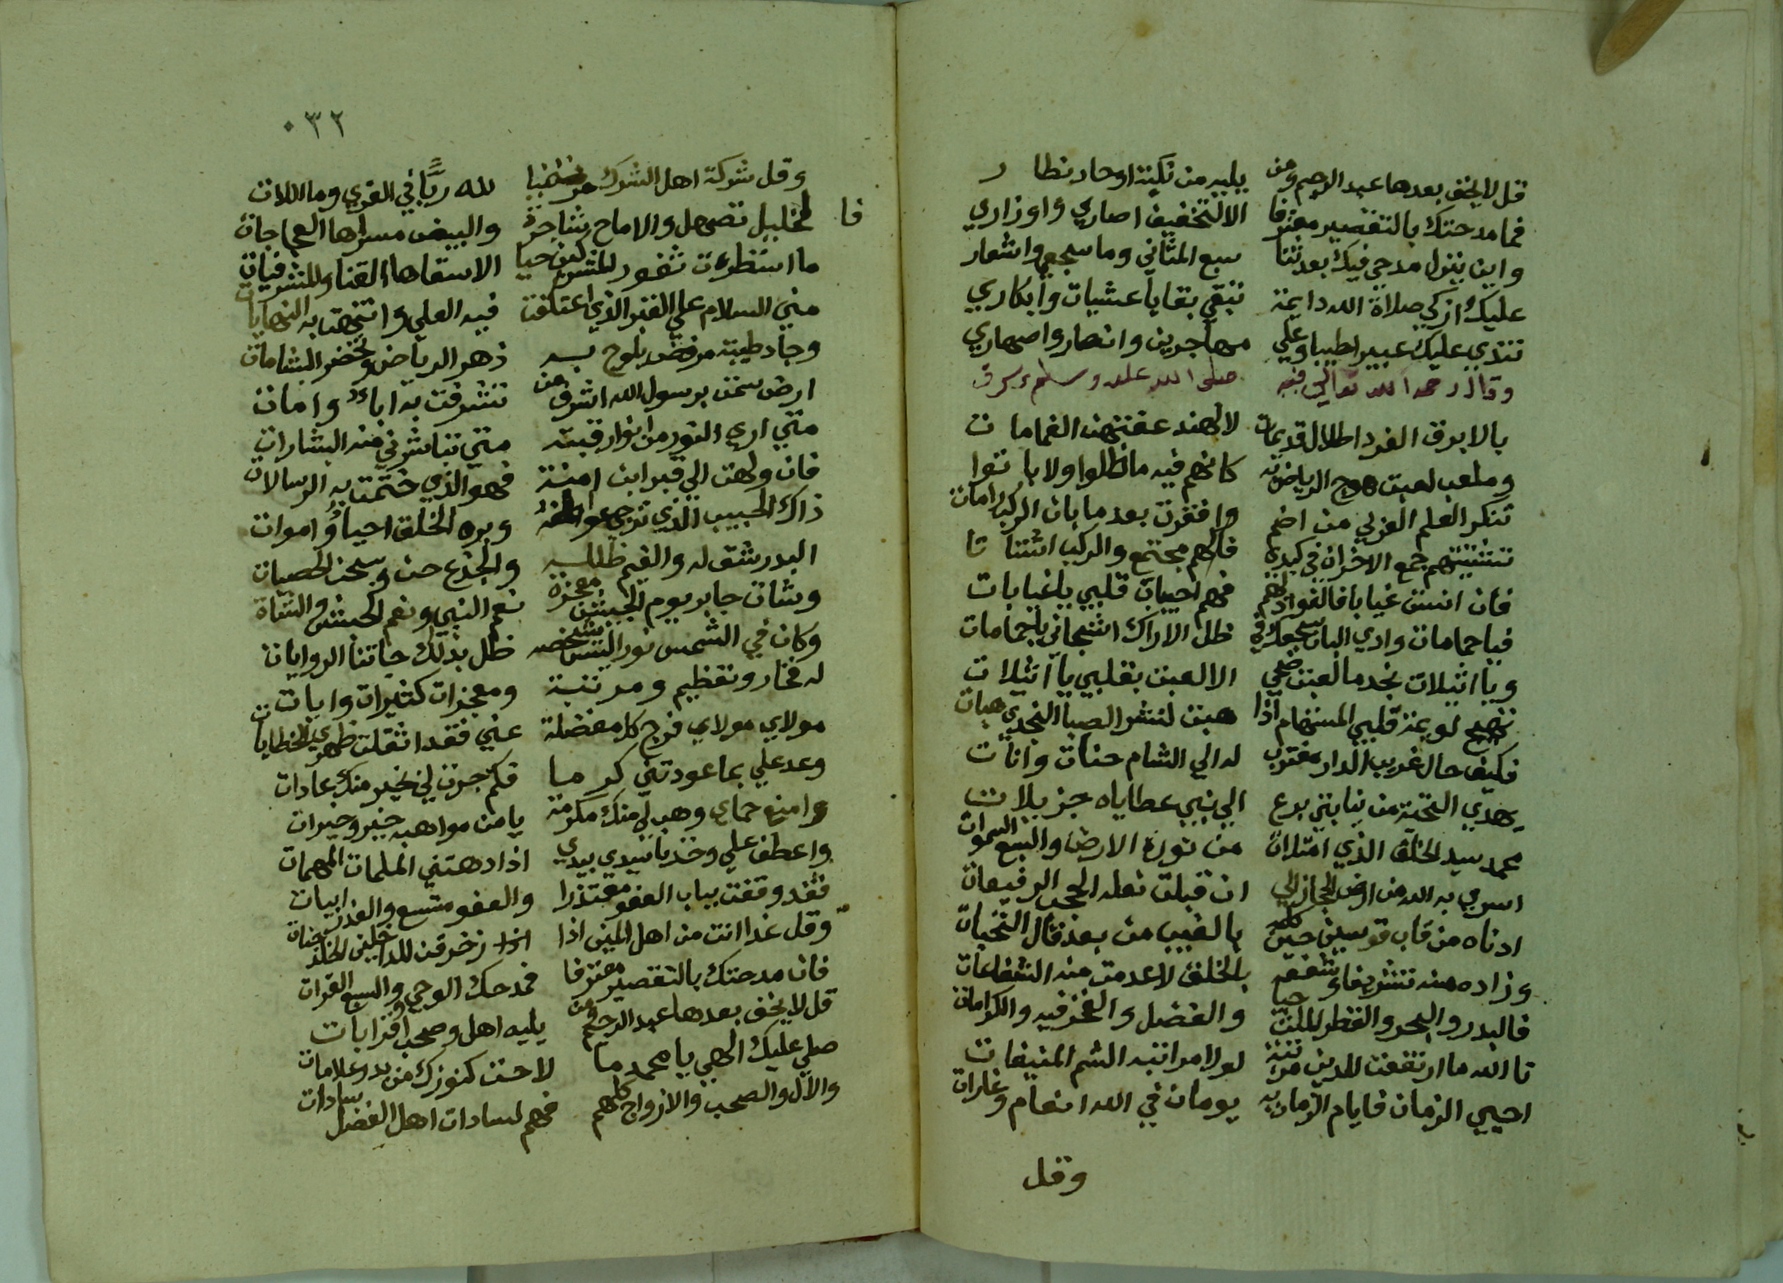 قل لا يخف بعدها عبد الرحيم ومن يليه من اوجار نظار
فما مدحتك بالتقصير معترفا الا لتخفيف اصاري واوزاري
واين ينزل مدحي فيك بعد ثنا سبع المثاني وما سجعي واشعار
عليك ازكي صلاة الله دايمة تبقي بقايا عشيات وابكاري
تندي عليك عبيرا طيبا وعلي مهاجرين وانصار واصهاري
وقال رحمه الله تعالي فيه صلى الله عليه وسلم
بالابرق الفرد اطلال قديمات لال هند عفتهن الغمامات
وملعب لعبت هوج الرياض به كانهم فيه ما ظلوا ولا باتوا
تنكر العلم الغربي من اضم واقفرت بعد ما بان الركب رامات
تشتيتهم جمع الاحزان في كبدي فالهم مجتمع والركب اشتاتا
فان انسن غيابا فالفواد لهم فهم احباب قلبي يا غيابات
فيا حمامات وادي البان سجعك في ظل الاراك اشجاني يا حمامات
ويا اثيلات نجد ما لعبت ضحي الا لعبت بقلبي يا اثيلات
تهيج لوعة قلبي المستهام اذا هبت لنشر الصبا النجدي هبات
فكيف حال غريب الدار مغترب له الي الشام حنات وانات
يهدي التحية من نيابتي برع الي نبي عطاياه جزيلات
محمد سيد الخلق الذي امتلات من نوره الارض والسبع السموات
اسري به الله من ارض الحجاز الي ان قبلت نعله الحجب الرفيعات
ادناه من قاب قوسين حين كلمه بالغيب من بعد قال التحيات
وزاده منه تشريفا وشفعه بالخلق لا عدمت منه الشفاعات
فالبدر والبحر والقطر الملث حيا والفضل والفخر فيه والكرامات
تا الله ما ارتفعت للدين مرتبة لولا مراتبه الشم المنيفات
احيي الزمان فايام الزمان به يومان في الله انعام وغارات
وقل
٠٣٢
وقل شركة اهل الشرك لله ربا في القري وما اللات
فا لخليل تصهل والارماح شاجرة والبيض مسراها العجاجات
ما استنظرت ثغور للمشركين حيا الا سقاها القنا والمشرفيات
مني السلام علي القبر الذي اعتكفت فيه العلي وانتهت به النهايات
وجاد طيبة مرفض يلوح به زهر الرياض وتخضر البشامات
ارض سمت برسول الله اشرف من تشرفت به اباء وامات
متي اري النور من انوار قبته متي تباشرني منه البشارات
فان ولهت الي قبر ابن امنة فهو الذي ختمت به الرسالات
ذاك الحبيب الذي ترجي عواطفه وبره الخلق احياء واموات
البدر شق له والغيم ظلله والجذع حن وسبحن الحصيات
وشان جابر يوم الجيش معجزة نعم النبي ونعم الجيش والشاة
وكان في الشمس نورا ليس شخصه ظل بذلك جاتنا الروايات
له فخار وتعظيم ومرتبة ومعجزات كثيرات وايات
مولاي مولاي فرج كل معضلة عني فقد اثقلت ظهري الخطايات
وعد علي بما عودتني كرما فكم جرت لي بخير منك عادات
وامنع حماي وهب لي منك مكرمة يا من مواهبه خير وخيرات
واعطف علي وخذ يا سيدي بيدي اذا دهتني الملمات المهمات
فقد وقفت بباب العفو معتذرا والعفو متسع والعذر ابيات
وقل غدا انت من اهل اليمين اذا ازا زخرفت للداخلين الخلد جنات
فان مدحتك بالتقصير معترفا فمدحك الوحي والسبع القرات
قل لا يخف بعدها عبد الرحيم ومن يليه اهل وصحب او قرابات
صلي عليك الهي يا محمد ما لاحت كنوزك من بدر علامات
والال والصحب والازواج كلهم فهم لسادات اهل الفضل سادات